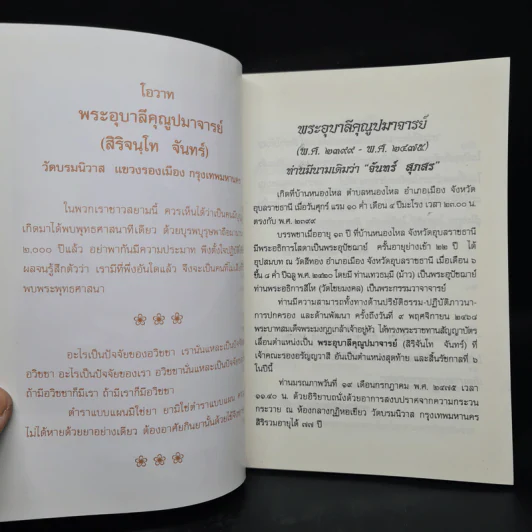 โอวาท
พระอุบาลีคุณูปมาจารย์
(สิริจนฺโท จันทร์)
วัดบรมนิวาส แขวงรองเมือง กรุงเทพมหานคร
ในพวกเราชาวสยามนี้ ควรเห็นได้ว่าเป็นคนมี
เกิดมาได้พบพุทธศาสนาทีเดียว ด้วยบุรพบุรุษพาถือมา
๒,๐๐๐ ปีแล้ว อย่าพากันมีความประมาท พึงตั้งใจปฏิบัติ
ผลจนรู้สึกตัวว่า เรามีที่พึ่งอันใดแล้ว จึงจะเป็นคนที่
พบพระพุทธศาสนา
อะไรเป็นปัจจัยของอวิชชา เรานั่นแหละเป็นปัจจัย
อวิชชา อะไรเป็นปัจจัยของเรา อวิชชานั่นแหละเป็นปัจจัย
ถ้ามีอวิชชาก็มีเรา ถ้ามีเราก็มีอวิชชา
ตำราแบบแผนมิใช่ยา ยามิใช่ตำราแบบแผน
ไม่ได้หายด้วยยาอย่างเดียว ต้องอาศัยกินยานั้นด้วย
พระอุบาลีคุณูปมาจารย์
(พ.ศ. ๒๓๙๙ - พ.ศ. ๒๔๗๕)
ท่านมีนามเดิมว่า "จันทร์ สุภสร"
เกิดที่บ้านหนองไหล ตำบลหนองไหล อำเภอเมือง จังหวัด
อุบลราชธานี เมื่อวันศุกร์ แรม ๑๐ ค่ำ เดือน ๔ ปีมะโรง เวลา ๒๓.๐๐ น.
ตรงกับ พ.ศ. ๒๓๙๙
บรรพชาเมื่ออายุ ๑๓ ปี ที่บ้านหนองไหล จังหวัดอุบลราชธานี
มีพระอธิการโสดาเป็นพระอุปัชฌาย์ ครั้นอายุย่างเข้า ๒๒ ปี ได้
อุปสมบท ณ วัดศรีทอง อำเภอเมือง จังหวัดอุบลราชธานี เมื่อเดือน ๖
ขึ้น ๘ ค่ำ ปีฉลู พ.ศ. ๒๔๒๐ โดยมี ท่านเทวธมฺมี (ม้าว) เป็นพระอุปัชฌาย์
ท่านพระอธิการสีโห (วัดไชยมงคล) เป็นพระกรรมวาจาจารย์
ท่านมีความสามารถทั้งทางด้านปริยัติธรรม-ปฏิบัติภาวนา
-การปกครอง และด้านพัฒนา ครั้งถึงวันที่ ๙ พฤศจิกายน ๒๔๖๘
พระบาทสมเด็จพระมงกุฎเกล้าเจ้าอยู่หัว ได้ทรงพระราชทานสัญญาบัตร
เลื่อนตำแหน่งเป็น พระอุบาลีคุณูปมาจารย์ (สิริจันโท จันทร์) ที่
เจ้าคณะรองอรัญญวาสี อันเป็นตำแหน่งสุดท้าย และสิ้นรัชกาลที่ ๖
ในปีนี้
ท่านมรณภาพวันที่ ๑๙ เดือนกรกฎาคม พ.ศ. ๒๔๗๕ เวลา
๑๑.๔๐ น. ด้วยอิริยาบถนั่งด้วยอาการสงบปราศจากความกระวน
กระวาย ณ ห้องกลางกุฏิหอเขียว วัดบรมนิวาส กรุงเทพมหานคร
สิริรวมอายุได้ ๗๗ ปี